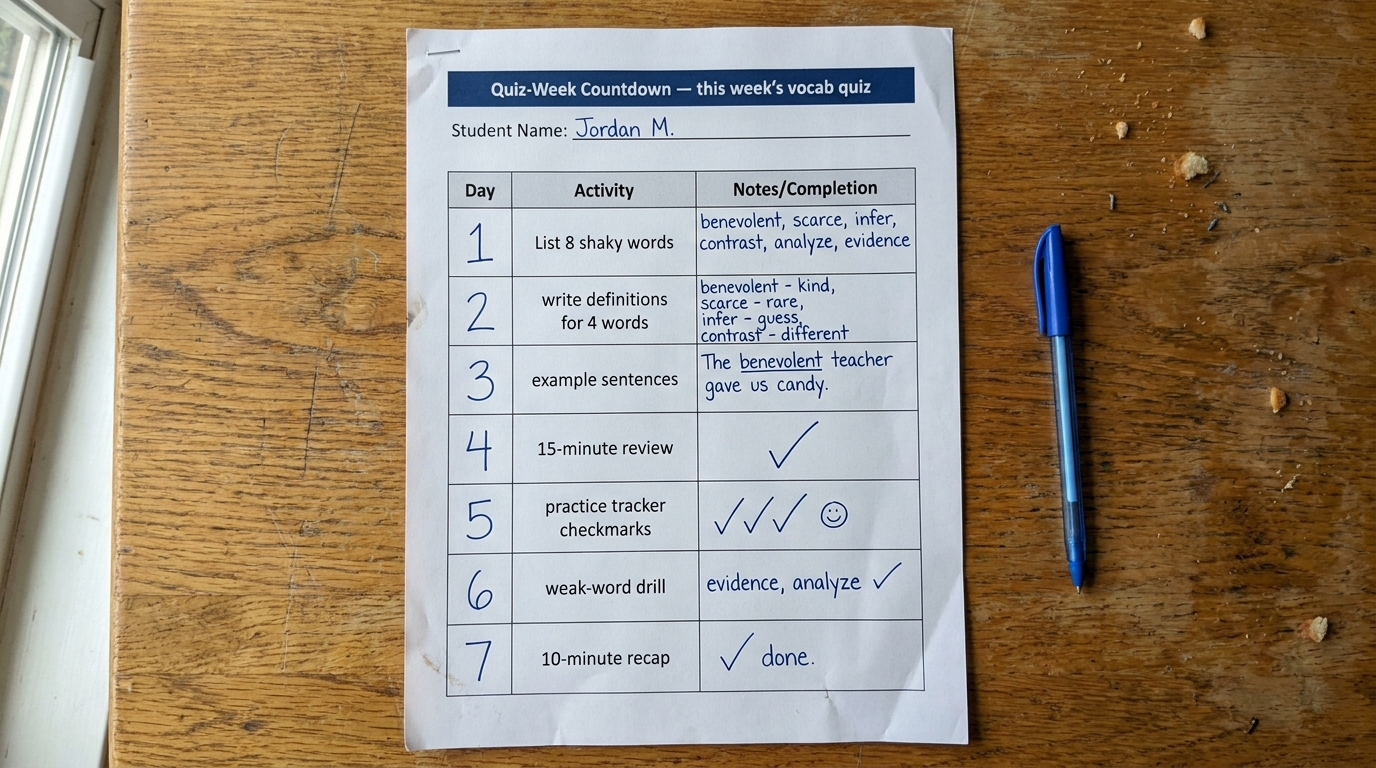 Quiz-Week Countdown — this week's vocab quiz
Student Name: Jordan M.
Day Activity Notes/Completion
1 List 8 shaky words benevolent, scarce, infer,
contrast, analyze, evidence
2 write definitions
for 4 words benevolent - kind,
scarce - rare,
infer - guess,
contrast - different
3 example sentences The benevolent teacher
gave us candy.
4 15-minute review ✓
5 practice tracker
checkmarks ✓✓✓ ☺
6 weak-word drill evidence, analyze ✓
7 10-minute recap ✓ done.